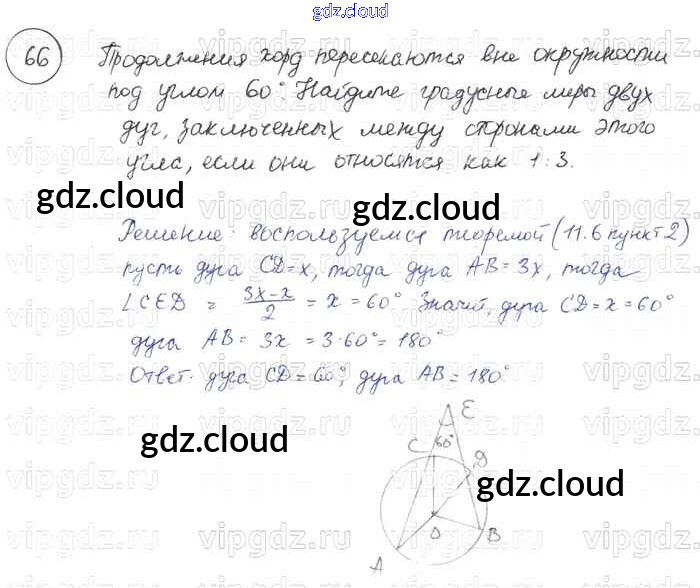 gdz.cloud
66 Продолжения хорд пересекаются вне окружности
под углом 60°. Найдите градусные меры двух
дуг, заключенных между сторонами этого
угла, если они относятся как 1:3.
gdz.cloud
gdz.cloud
Решение: воспользуемся теоремой (11.6 пункт 2)
пусть дуга CD=x, тогда дуга AB=3x, тогда
∠CED = 3x-x/2 = x = 60° Значит, дуга CD=x=60°
дуга AB= 3x = 3·60°=180°
Ответ: дуга CD=60°, дуга AB=180°
E
C 60° D
gdz.cloud
gdz.cloud
O
B
A
vipgdz.ru